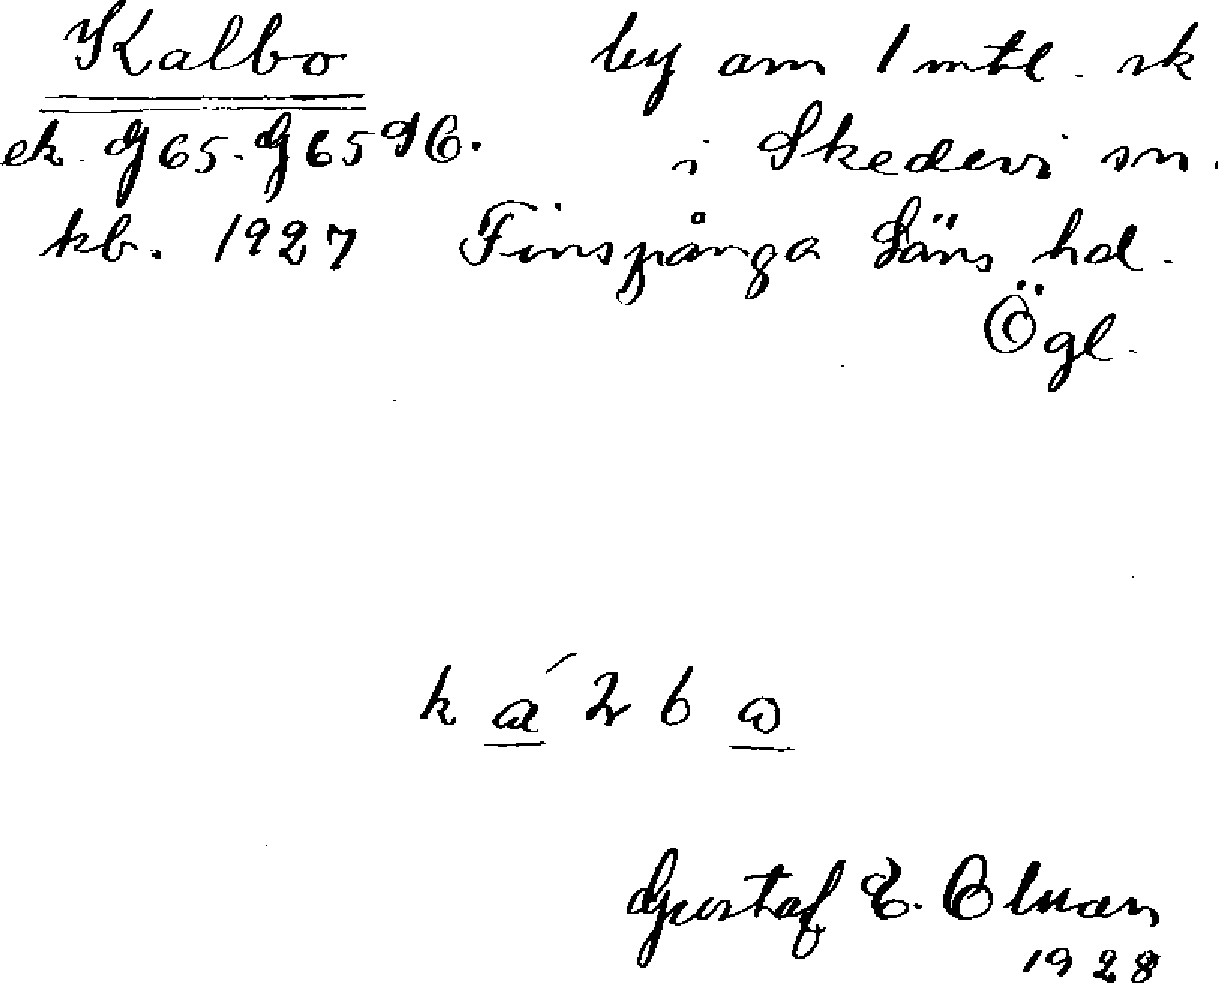 Kalbo by om 1 mtl. sk
ek. J65. J65 9C. i Skedevi sn.
kb. 1927 Finspånga Läns hd.
Ögl.
k a´ 2 b o
Gustaf E. Olman
1928